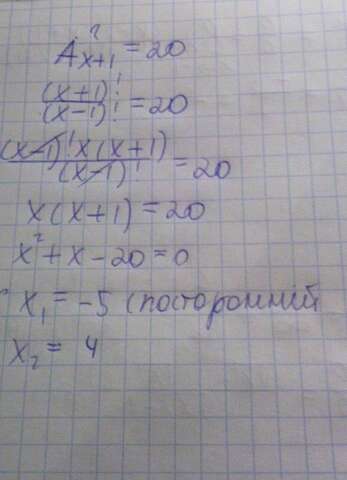 A²ₓ₊₁ = 20
(x+1)! / (x-1)! = 20
(x-1)! x (x+1) / (x-1)! = 20
x(x+1) = 20
x² + x - 20 = 0
x₁ = -5 (посторонний
x₂ = 4